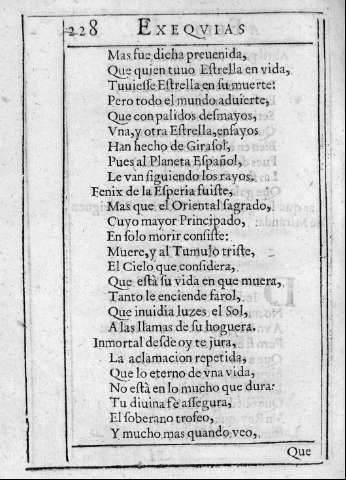 228 EXEQVIAS
Mas fue dicha preuenida,
Que quien tuuo Estrella en vida,
Tuuiesse Estrella en su muerte:
Pero todo el mundo aduierte,
Que con palidos desmayos,
Vna, y otra Estrella, ensayos
Han hecho de Girasol,
Pues al Planeta Español,
Le van siguiendo los rayos.
Fenix de la Esperia fuiste,
Mas que el Oriental sagrado,
Cuyo mayor Principado,
En solo morir consiste:
Muere, y al Tumulo triste,
El Cielo que considera,
Que està su vida en que muera,
Tanto le enciende farol,
Que inuidia luzes el Sol,
A las llamas de su hoguera.
Inmortal desde oy te jura,
La aclamacion repetida,
Que lo eterno de vna vida,
No està en lo mucho que dura:
Tu diuina fè assegura,
El soberano trofeo,
Y mucho mas quando veo,
Que